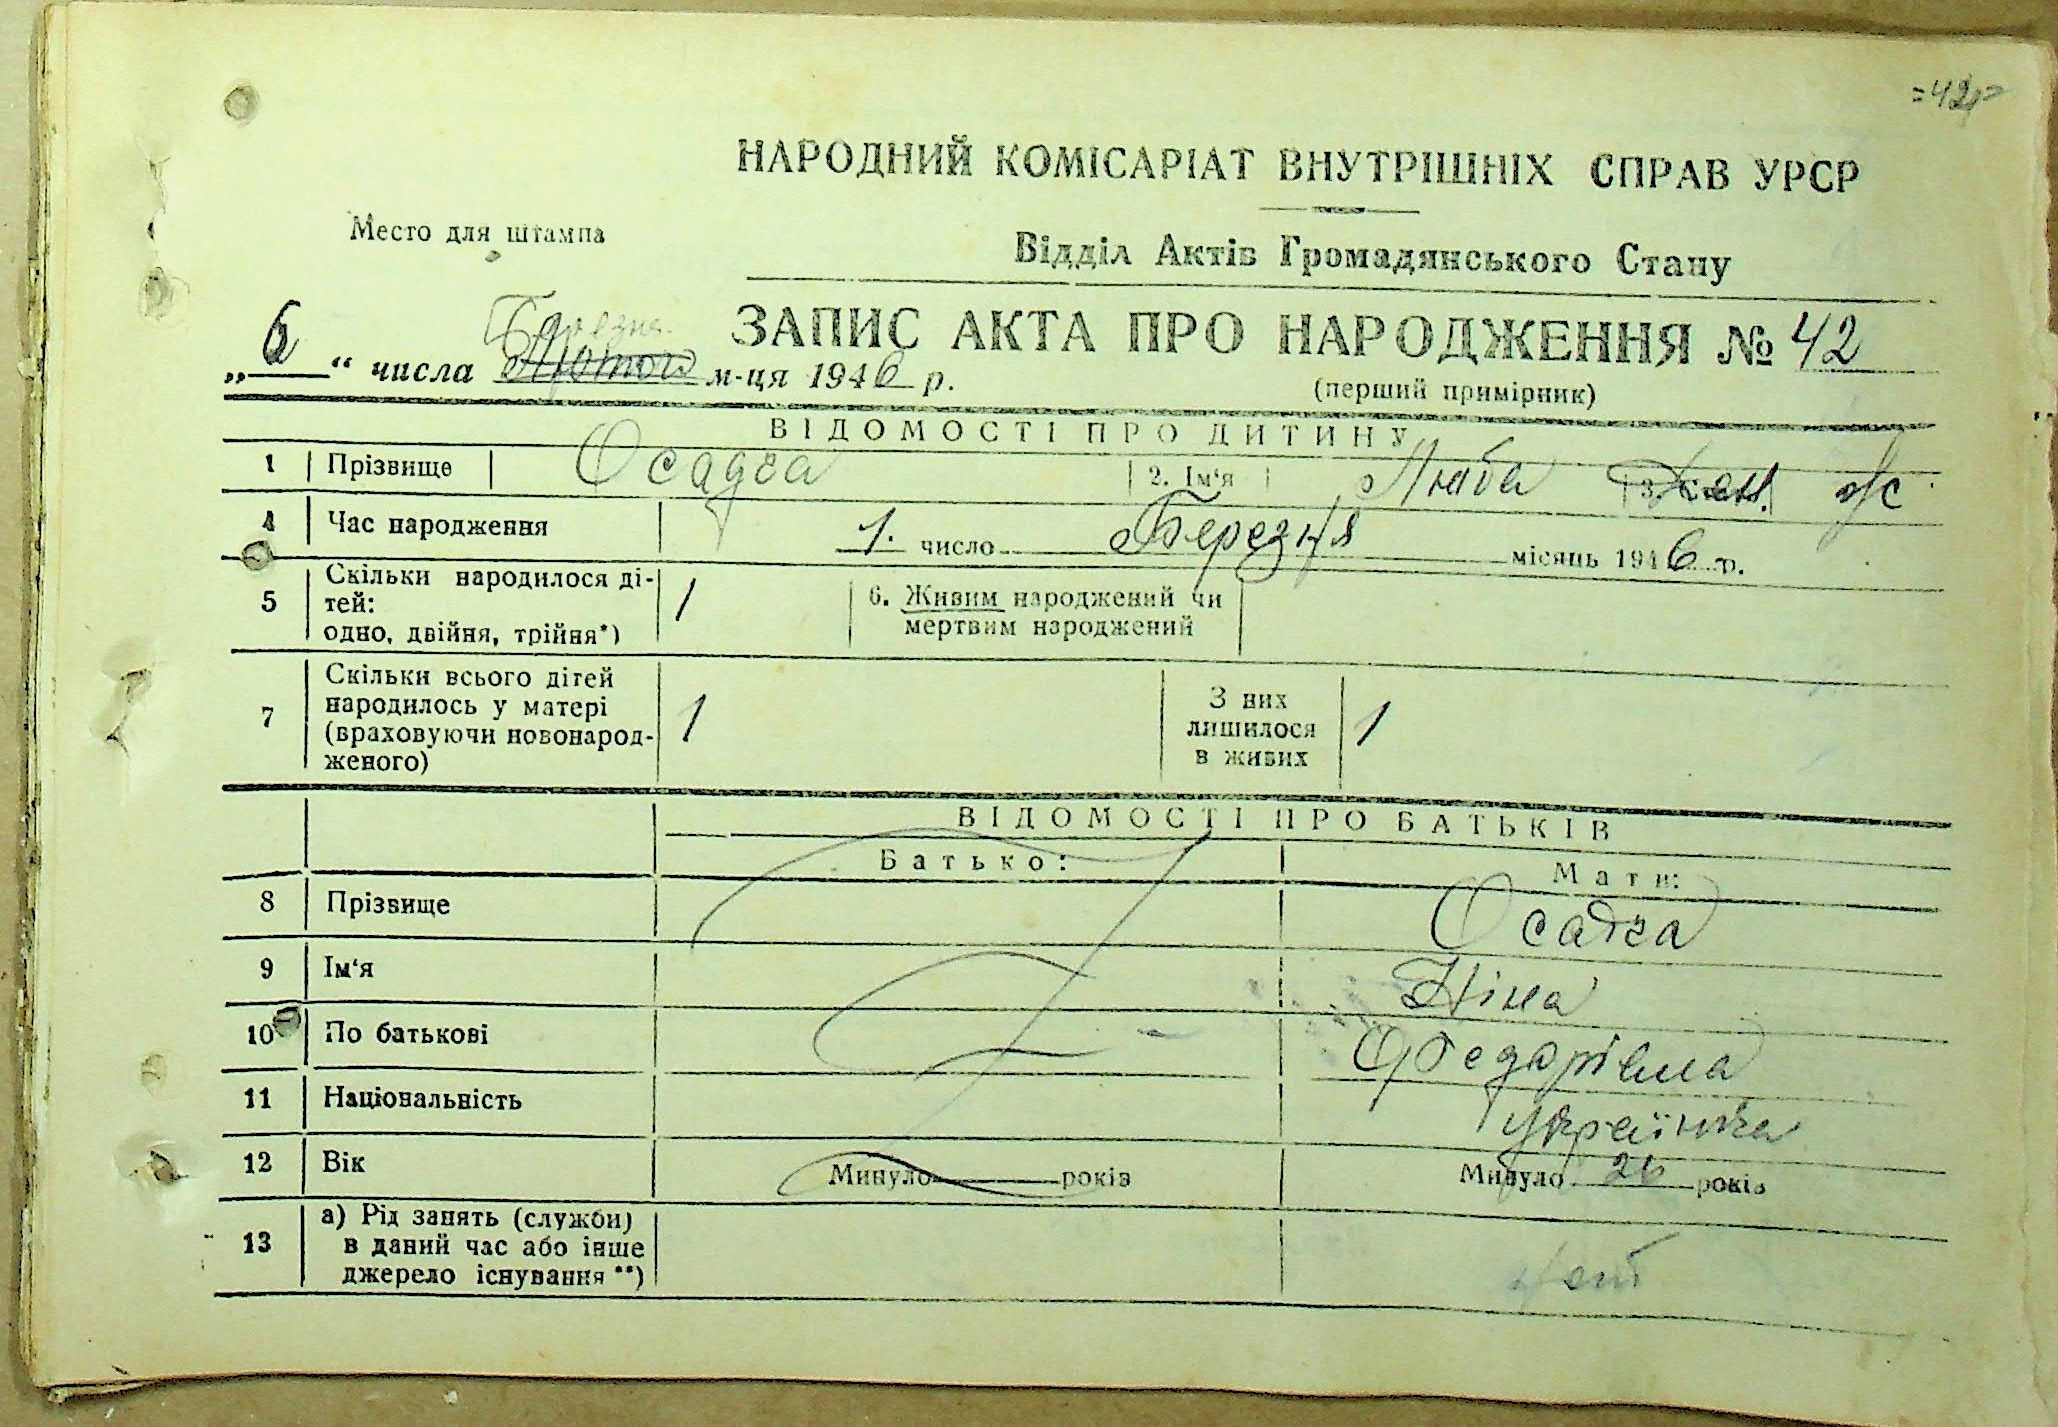 =42=
НАРОДНИЙ КОМІСАРІАТ ВНУТРІШНІХ СПРАВ УРСР
Место для штампа
Відділ Актів Громадянського Стану
Березня
„6“ числа Лютого м-ця 1946 р.
ЗАПИС АКТА ПРО НАРОДЖЕННЯ № 42
(перший примірник)
ВІДОМОСТІ ПРО ДИТИНУ
1 Прізвище Осадча 2. Ім‘я Люба 3. Жен. ж
4 Час народження 1. число Березня місяць 1946 р.
5 Скільки народилося ді-
тей:
одно, двійня, трійня*) 1
6. Живим народжений чи
мертвим народжений
7 Скільки всього дітей
народилось у матері
(враховуючи новонарод-
женого) 1
З них
лишилося
в живих 1
ВІДОМОСТІ ПРО БАТЬКІВ
Батько: Мати:
8 Прізвище Осадча
9 Ім‘я Ніна
10 По батькові Федорівна
11 Національність Українка
12 Вік Минуло років Минуло 26 років
13 а) Рід занять (служби)
в даний час або інше
джерело існування **)